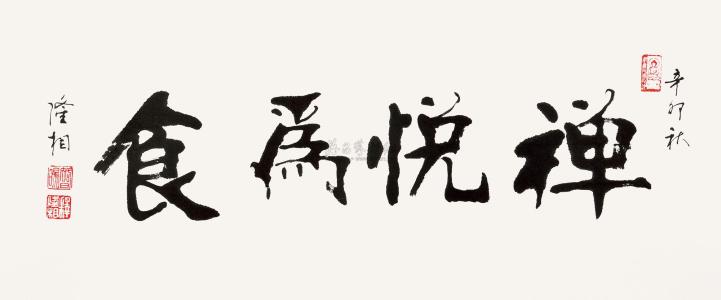 辛卯秋
禅悦為食
隆相